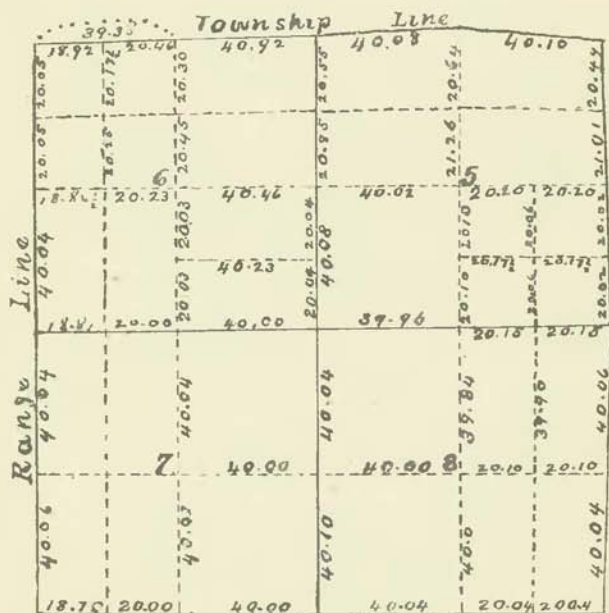 Township Line
39.38
18.92 20.46 40.92 40.08 40.10
20.05 20.30 20.55 20.64 20.44
20.05 20.45 20.85 21.26 21.01
6 5
20.23 40.46 40.02 20.20 20.20
40.04 20.03 20.04 40.08 20.10 20.06 20.02
40.23
20.03 20.04 20.10 20.06 20.02
18.81 20.00 40.00 39.96
20.15 20.15
Range Line
40.04 40.04 40.04 39.84 39.96 40.06
7 40.00 40.00 8 20.10 20.10
40.06 40.07 40.10 40.0 40.04
18.75 20.00 40.00 40.04 20.04 200.4